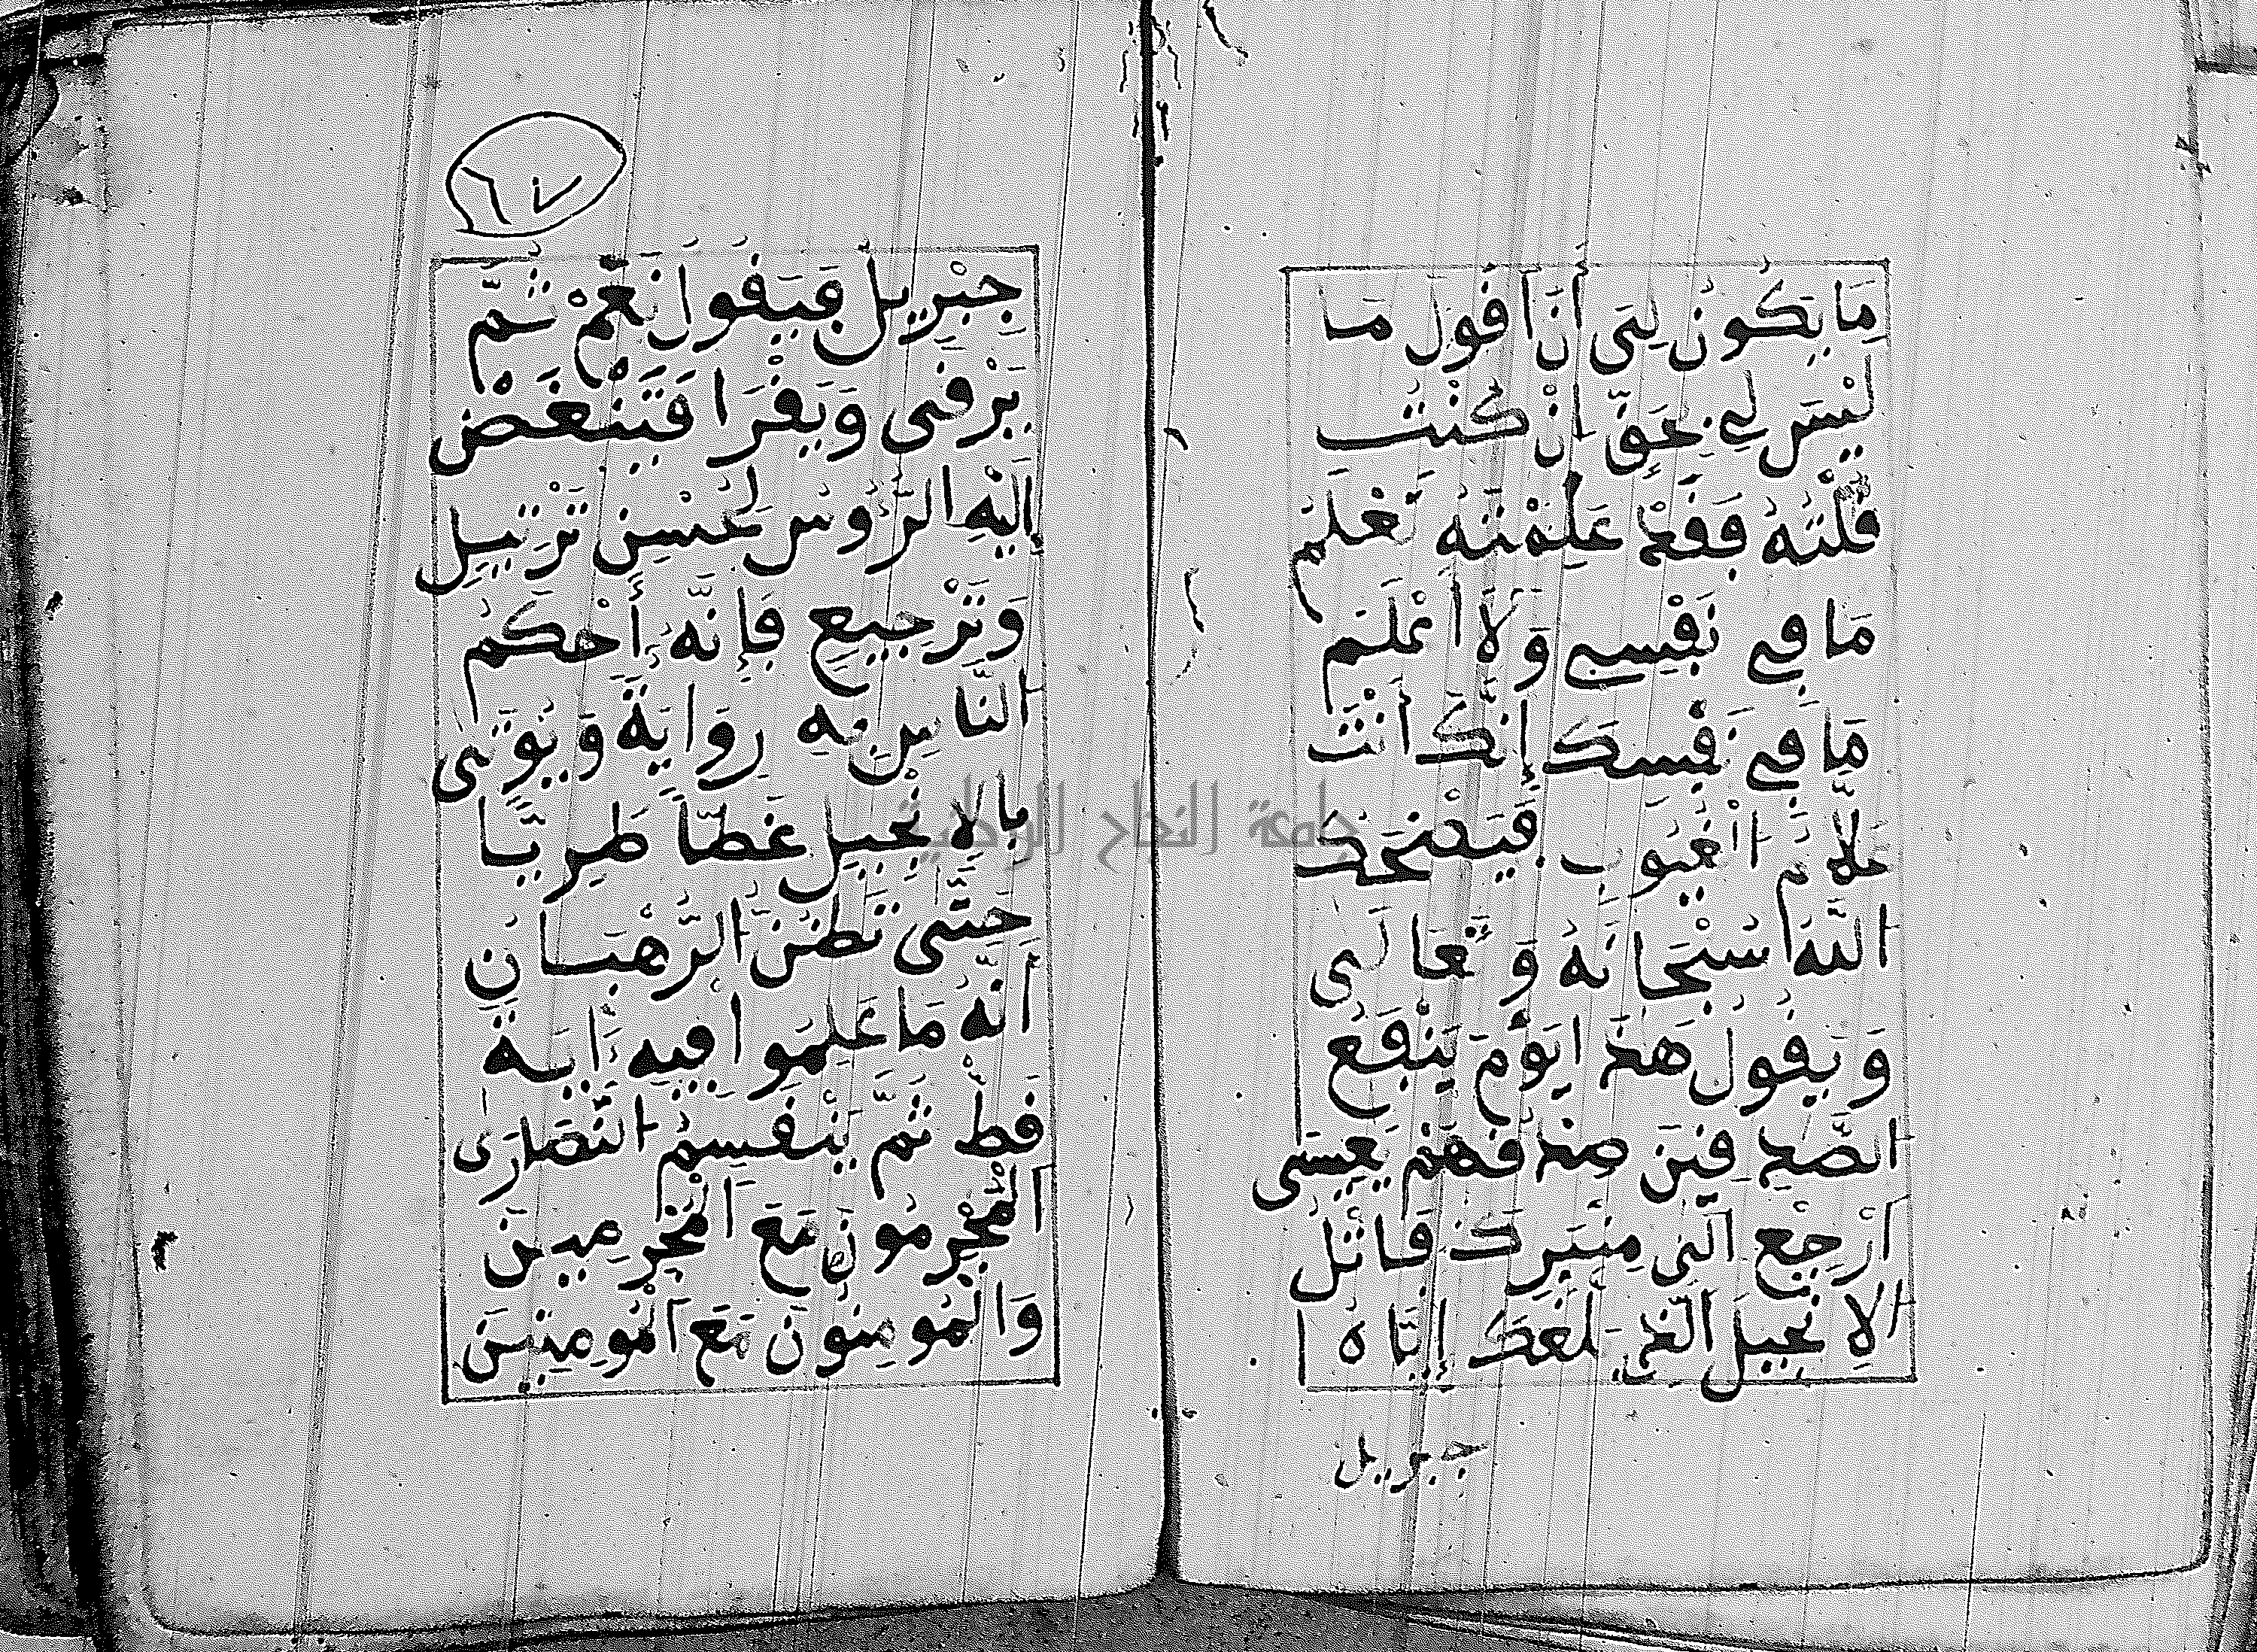 مَا يَكُونُ لِىَ أَنَ اَقُولَ مَا
لَيْسَ لِى بِحَقٍّ اِنْ كُنْتُ
قُلْتُهُ فَقَدْ عَلِمْتَهُ تَعْلَمُ
مَا فِى نَفْسِى وَلَا أَعْلَمُ
مَا فِى نَفْسِكَ إِنَّكَ أَنْتَ
عَلَّامُ الْغُيُوبِ فَيَضْحَكُ
اللَّهُ سُبْحَانَهُ وَتَعَالَى
وَيَقُولُ هَذَا يَوْمَ يَنْفَعُ
الصَّدِقِينَ صِدْقُهُمْ يَعِيسَى
ارْجِعْ اِلَى مِنْبَرِكَ فَاتْلُ
الِانْجِيلَ الَّذِى بَلَّغَكَ إِيَّاهُ
جبريل
٦٧
جِبْرِيلُ فَيَقُولُ نَعَمْ ثُمَّ
يَرْقَى وَيَقْرَا فَتَنْغَضُ
اِلَيْهِ الرُّءُوسُ لِحُسْنِ تَرْتِيلٍ
وَتَرْجِيعٍ فَإِنَّهُ أَحْكَمُ
النَّاسِ بِهِ رِوَايَةً وَيُوتَى
بِالِانْجِيلِ غَضّاً طَرِيّاً
حَتَّى تَظُنَّ الرُّهْبَانِ
أَنَّهُ مَا عَلِمُوا فِيهِ ءَايَةً
قَطُّ ثُمَّ يَنْقَسِمُ النَّصَارَى
الْمُجْرِمُونَ مَعَ الْمُجْرِمِينَ
وَالْمُومِنُونَ مَعَ الْمُومِنِينَ
جامعة النجاح الوطنية